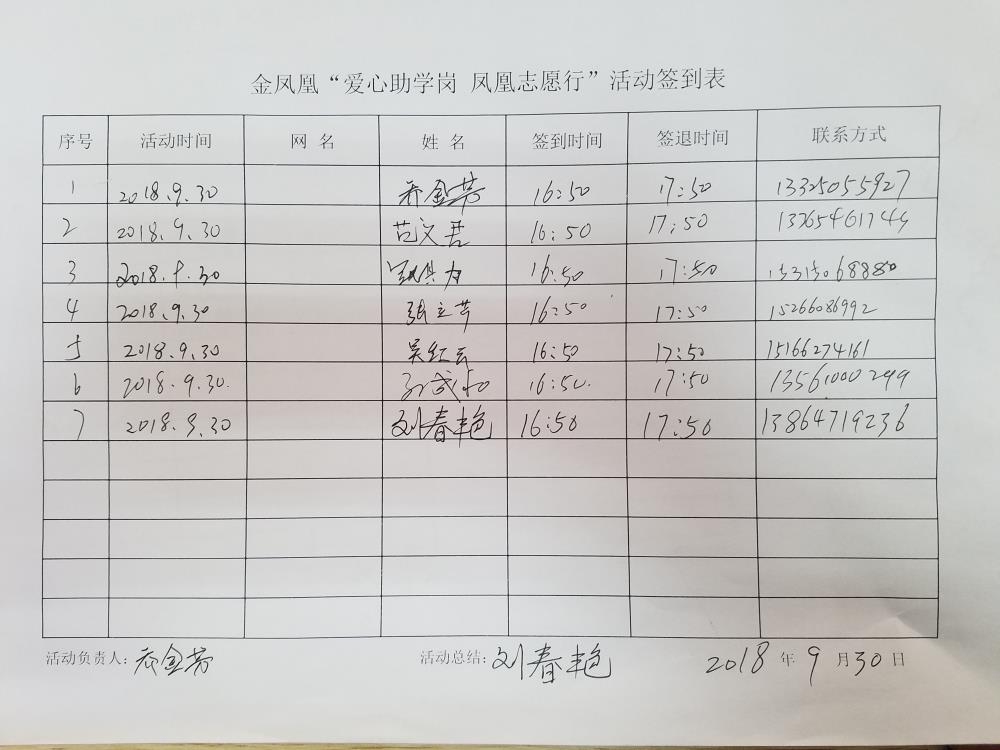 金凤凰“爱心助学岗 凤凰志愿行”活动签到表
序号 活动时间 网 名 姓 名 签到时间 签退时间 联系方式
1 2018.9.30 乔金芳 16:50 17:50 13325055927
2 2018.9.30 范文君 16:50 17:50
3 2018.9.30 16:50 17:50 15315068880
4 2018.9.30 张立芹 16:50 17:50 15266086992
5 2018.9.30 吴红云 16:50 17:50 15166274161
6 2018.9.30. 孙成和 16:50. 17:50 13561000299
7 2018.9.30 刘春艳 16:50 17:50 13864719236
活动负责人: 乔金芳 活动总结: 刘春艳 2018 年 9 月 30 日